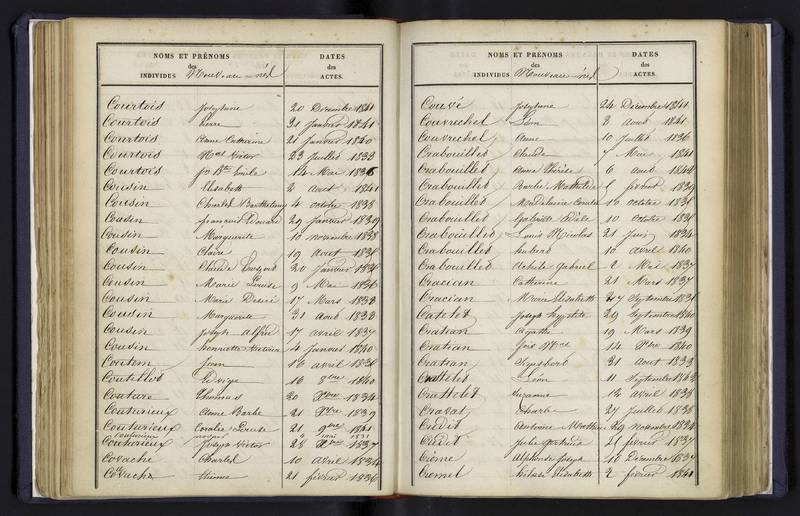 NOMS ET PRÉNOMS DATES
des des
INDIVIDUS Nouveau-nés ACTES.
Courtois Josephine 20 Décembre 1841
Courtois Pierre 31 Janvier 1841
Courtois Anne Catherine 21 Janvier 1840
Courtois Victor 23 Juillet 1833
Courtois Emile 14 Mai 1836
Cousin Elisabeth 2 aout 1841
Cousin Charles Barthelemy 4 octobre 1838
Cousin francois Edouard 29 Janvier 1839
Cousin Marguerite 10 novembre 1838
Cousin Claire 19 aout
Cousin Claude 20 Janvier
Cousin Marie Louise 9 Mai 1836
Cousin Marie Desiré 17 Mars 1833
Cousin Marguerite 31 Aout 1833
Cousin Joseph 17 avril 1837
Cousin Henriette Victoire 4 Janvier 1840
Coutem Jean 16 avril
Coutillet 16 8bre 1840
Couture Thomas 30 Xbre 1834
Couturieux Anne Barbe 21 Xbre 1839
Couturieux Coralie Louise 21 9bre 1841
Couturieux mai 1831
Couturieux Joseph Victor 28 Xbre 1837
Covache Charles 10 avril 1834
Covache Etienne 21 février 1836
NOMS ET PRÉNOMS DATES
des des
INDIVIDUS Nouveau-nés ACTES.
Couvé Josephine 24 Décembre 1841
Couvrechel Léon 3 Aout 1841
Couvrechel Anne 10 Juillet 1836
Crabouillet Claude 7 Mai 1841
Crabouillet Anne Thérèse 6 aout
Crabouillet Mathilde 1 février 1839
Crabouillet Madeleine 16 octobre
Crabouillet Gabrielle Adèle 10 octobre
Crabouillet Louis Nicolas 21 Juin 1834
Crabouillet hubert 10 avril 1840
Crabouillet Gabriel 2 Mai 1837
Cracian Catherine 21 Mars 1837
Cracian Marie Elisabeth 27 Septembre
Catelet Joseph hypolite 29 Septembre 1840
Cratian Agathe 19 Mars 1839
Cratian 14 Xbre 1840
Cratian 31 Aout 1833
Crattelet Léon 11 Septembre
Crattelet Suzanne 12 avril 1838
Cravat Charles 27 Juillet 1838
Crédit Antoine 29 Novembre 1834
Crédit Julie 21 février 1837
Crême Alphonse Joseph 10 Décembre 1837
Cremel Elisabeth 2 février 1841